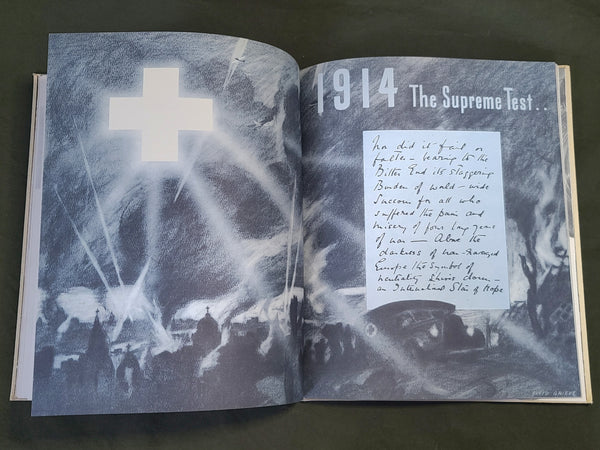 1914 The Supreme Test..
Nor did it fail or
falter - bearing to the
Bitter End its staggering
Burden of world-wide
Succour for all who
suffered the pain and
misery of four long years
of war — Above the
darkness of war-ravaged
Europe the symbol of
neutrality Shines down -
an International Star of Hope